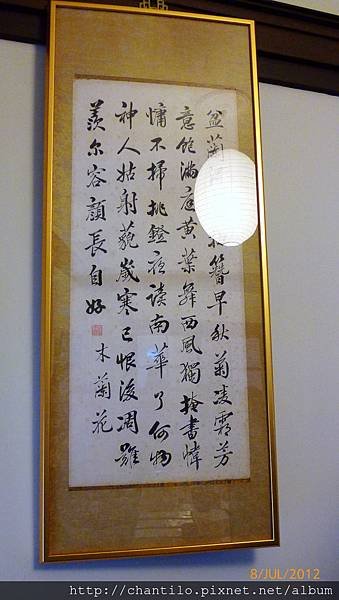 盆蘭簪早秋菊凌霜芳
意飽滿庭黃葉舞西風獨掩書幃
慵不掃挑鐙夜读南華了何物
神人姑射藐歲寒已恨後凋難
羨尔容顏長自好
木蘭花
8/JUL/2012
http://chantilo.pixnet.net/album